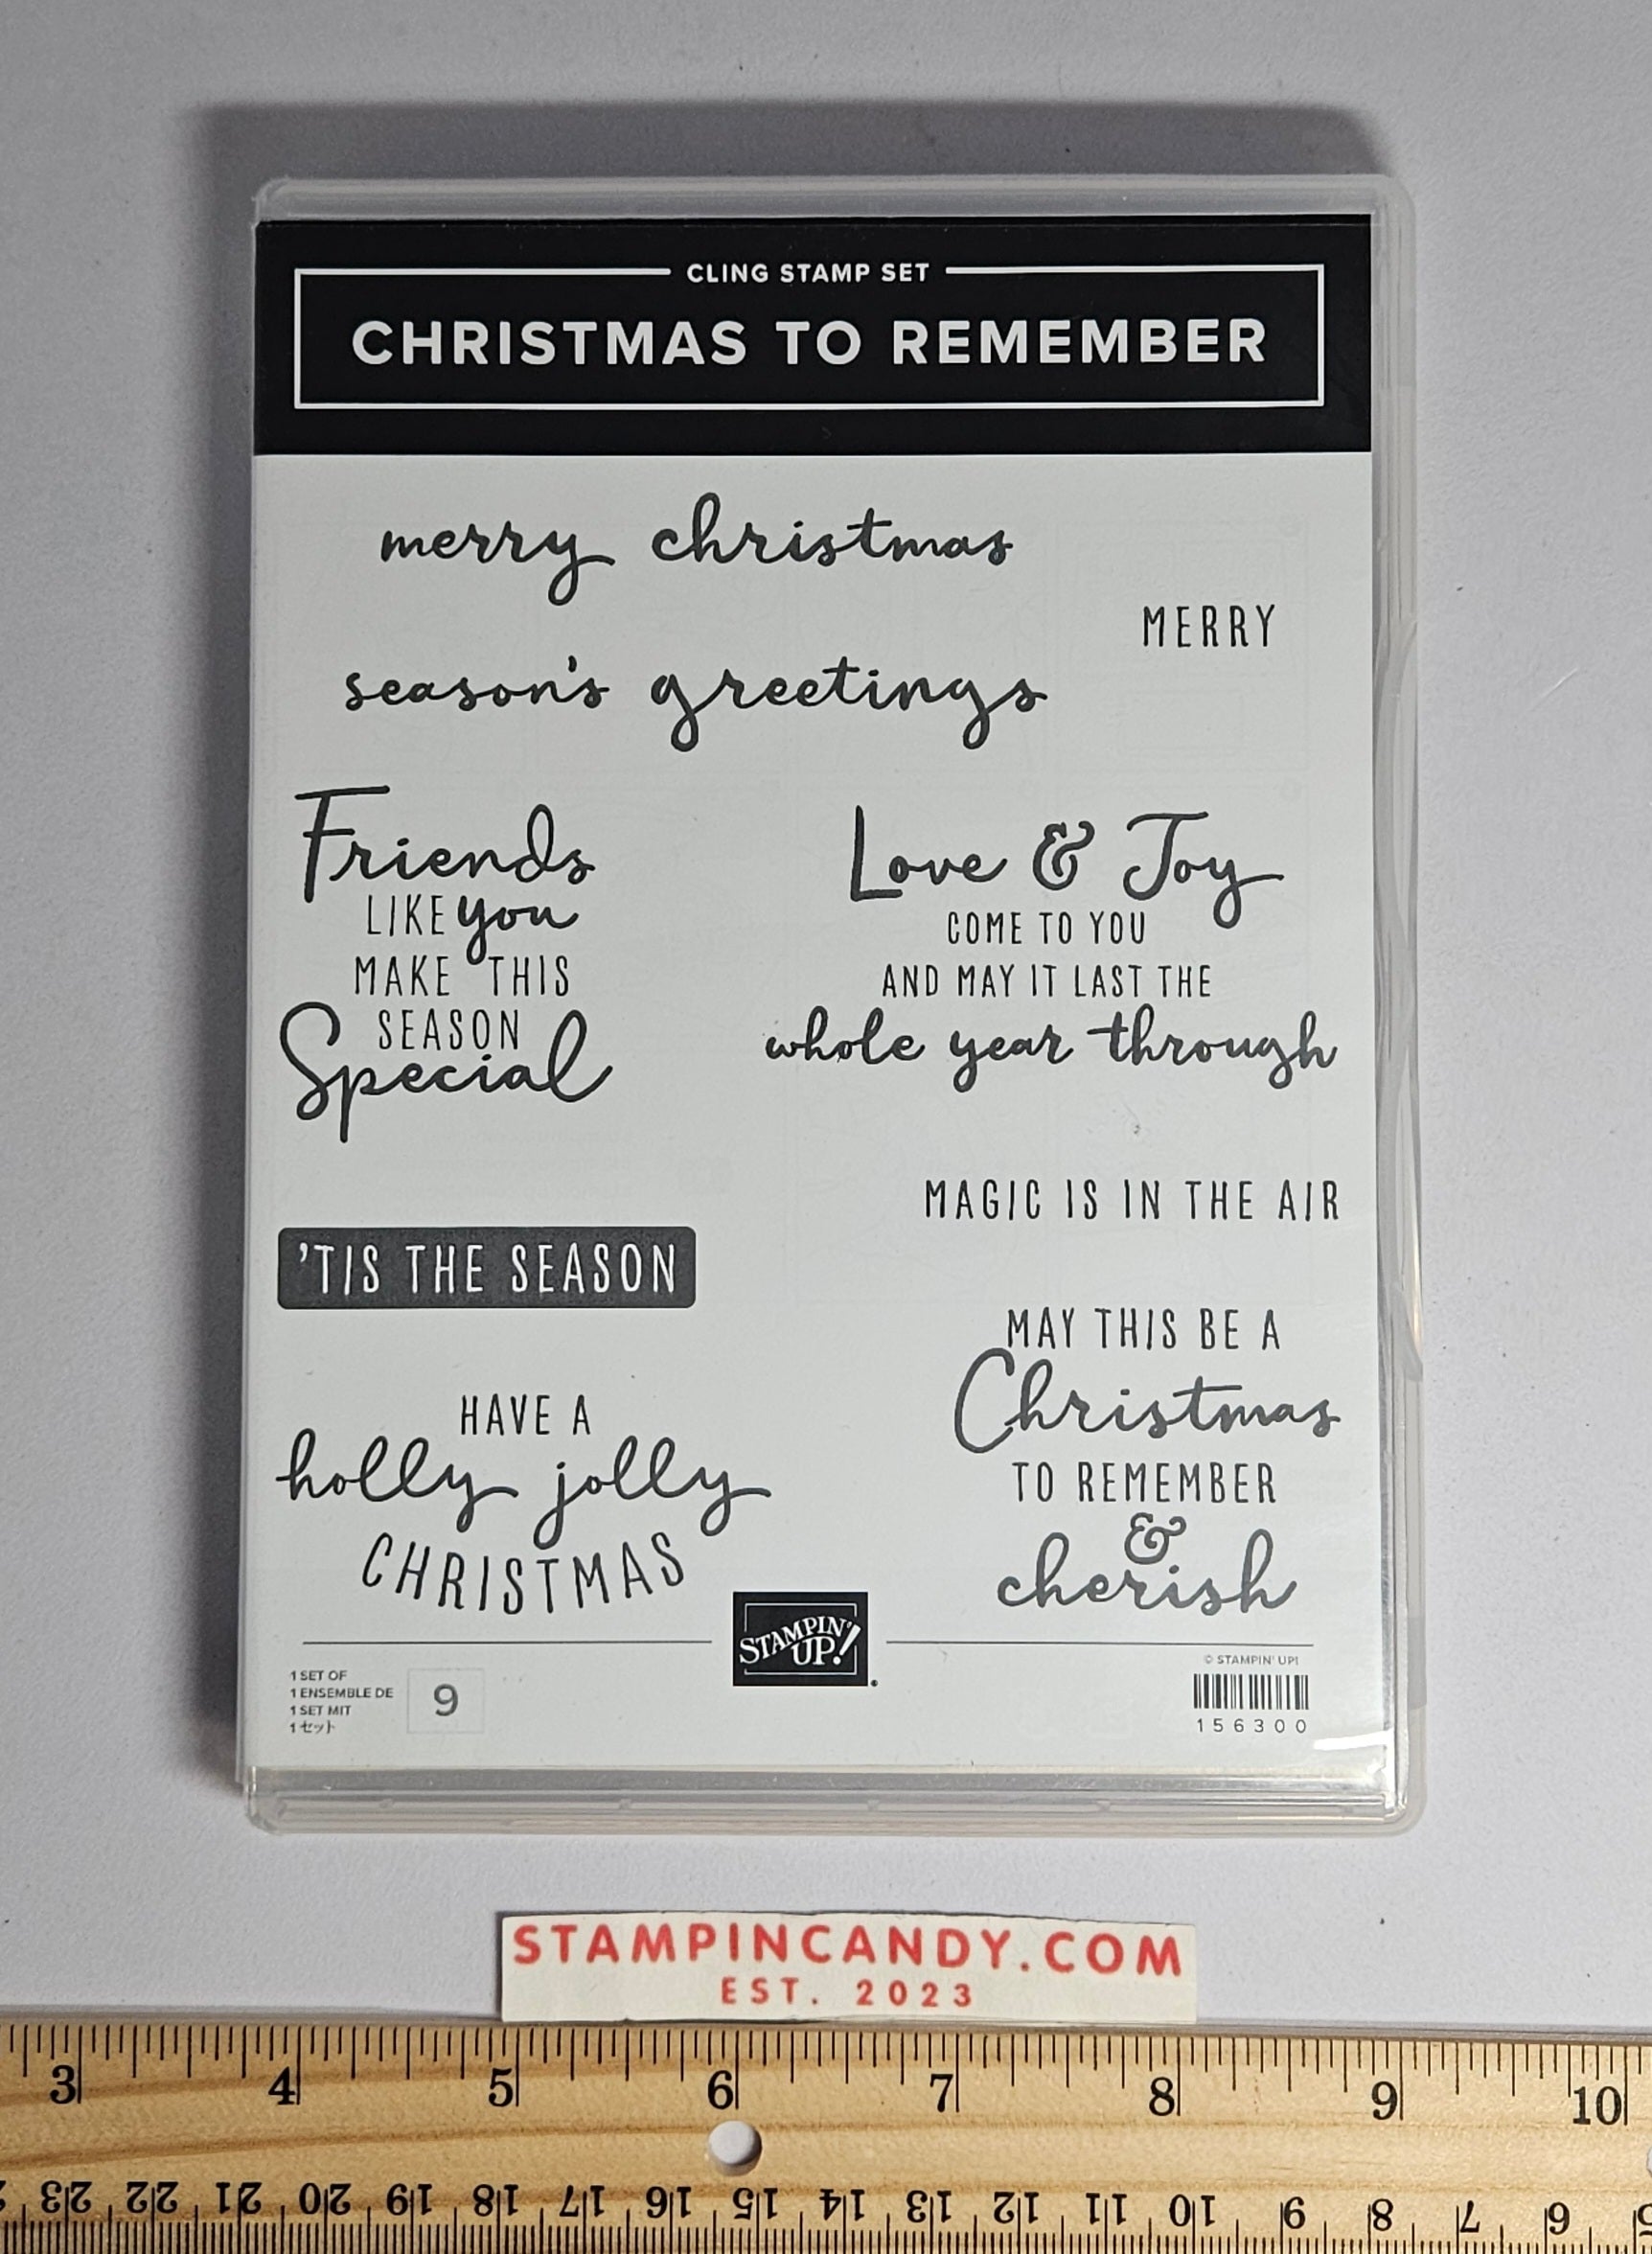 CLING STAMP SET
CHRISTMAS TO REMEMBER
merry christmas
MERRY
season's greetings
Friends
LIKE you
MAKE THIS
SEASON
Special
Love & Joy
COME TO YOU
AND MAY IT LAST THE
whole year through
MAGIC IS IN THE AIR
'TIS THE SEASON
MAY THIS BE A
Christmas
TO REMEMBER
&
cherish
HAVE A
holly jolly
CHRISTMAS
STAMPIN'
UP!
1 SET OF
1 ENSEMBLE DE
1 SET MIT
1セット
9
© STAMPIN' UP!
156300
STAMPINCANDY.COM
EST. 2023
3 4 5 6 7 8 9 10
23 22 21 20 19 18 17 16 15 14 13 12 11 10 9 8 7 6 5